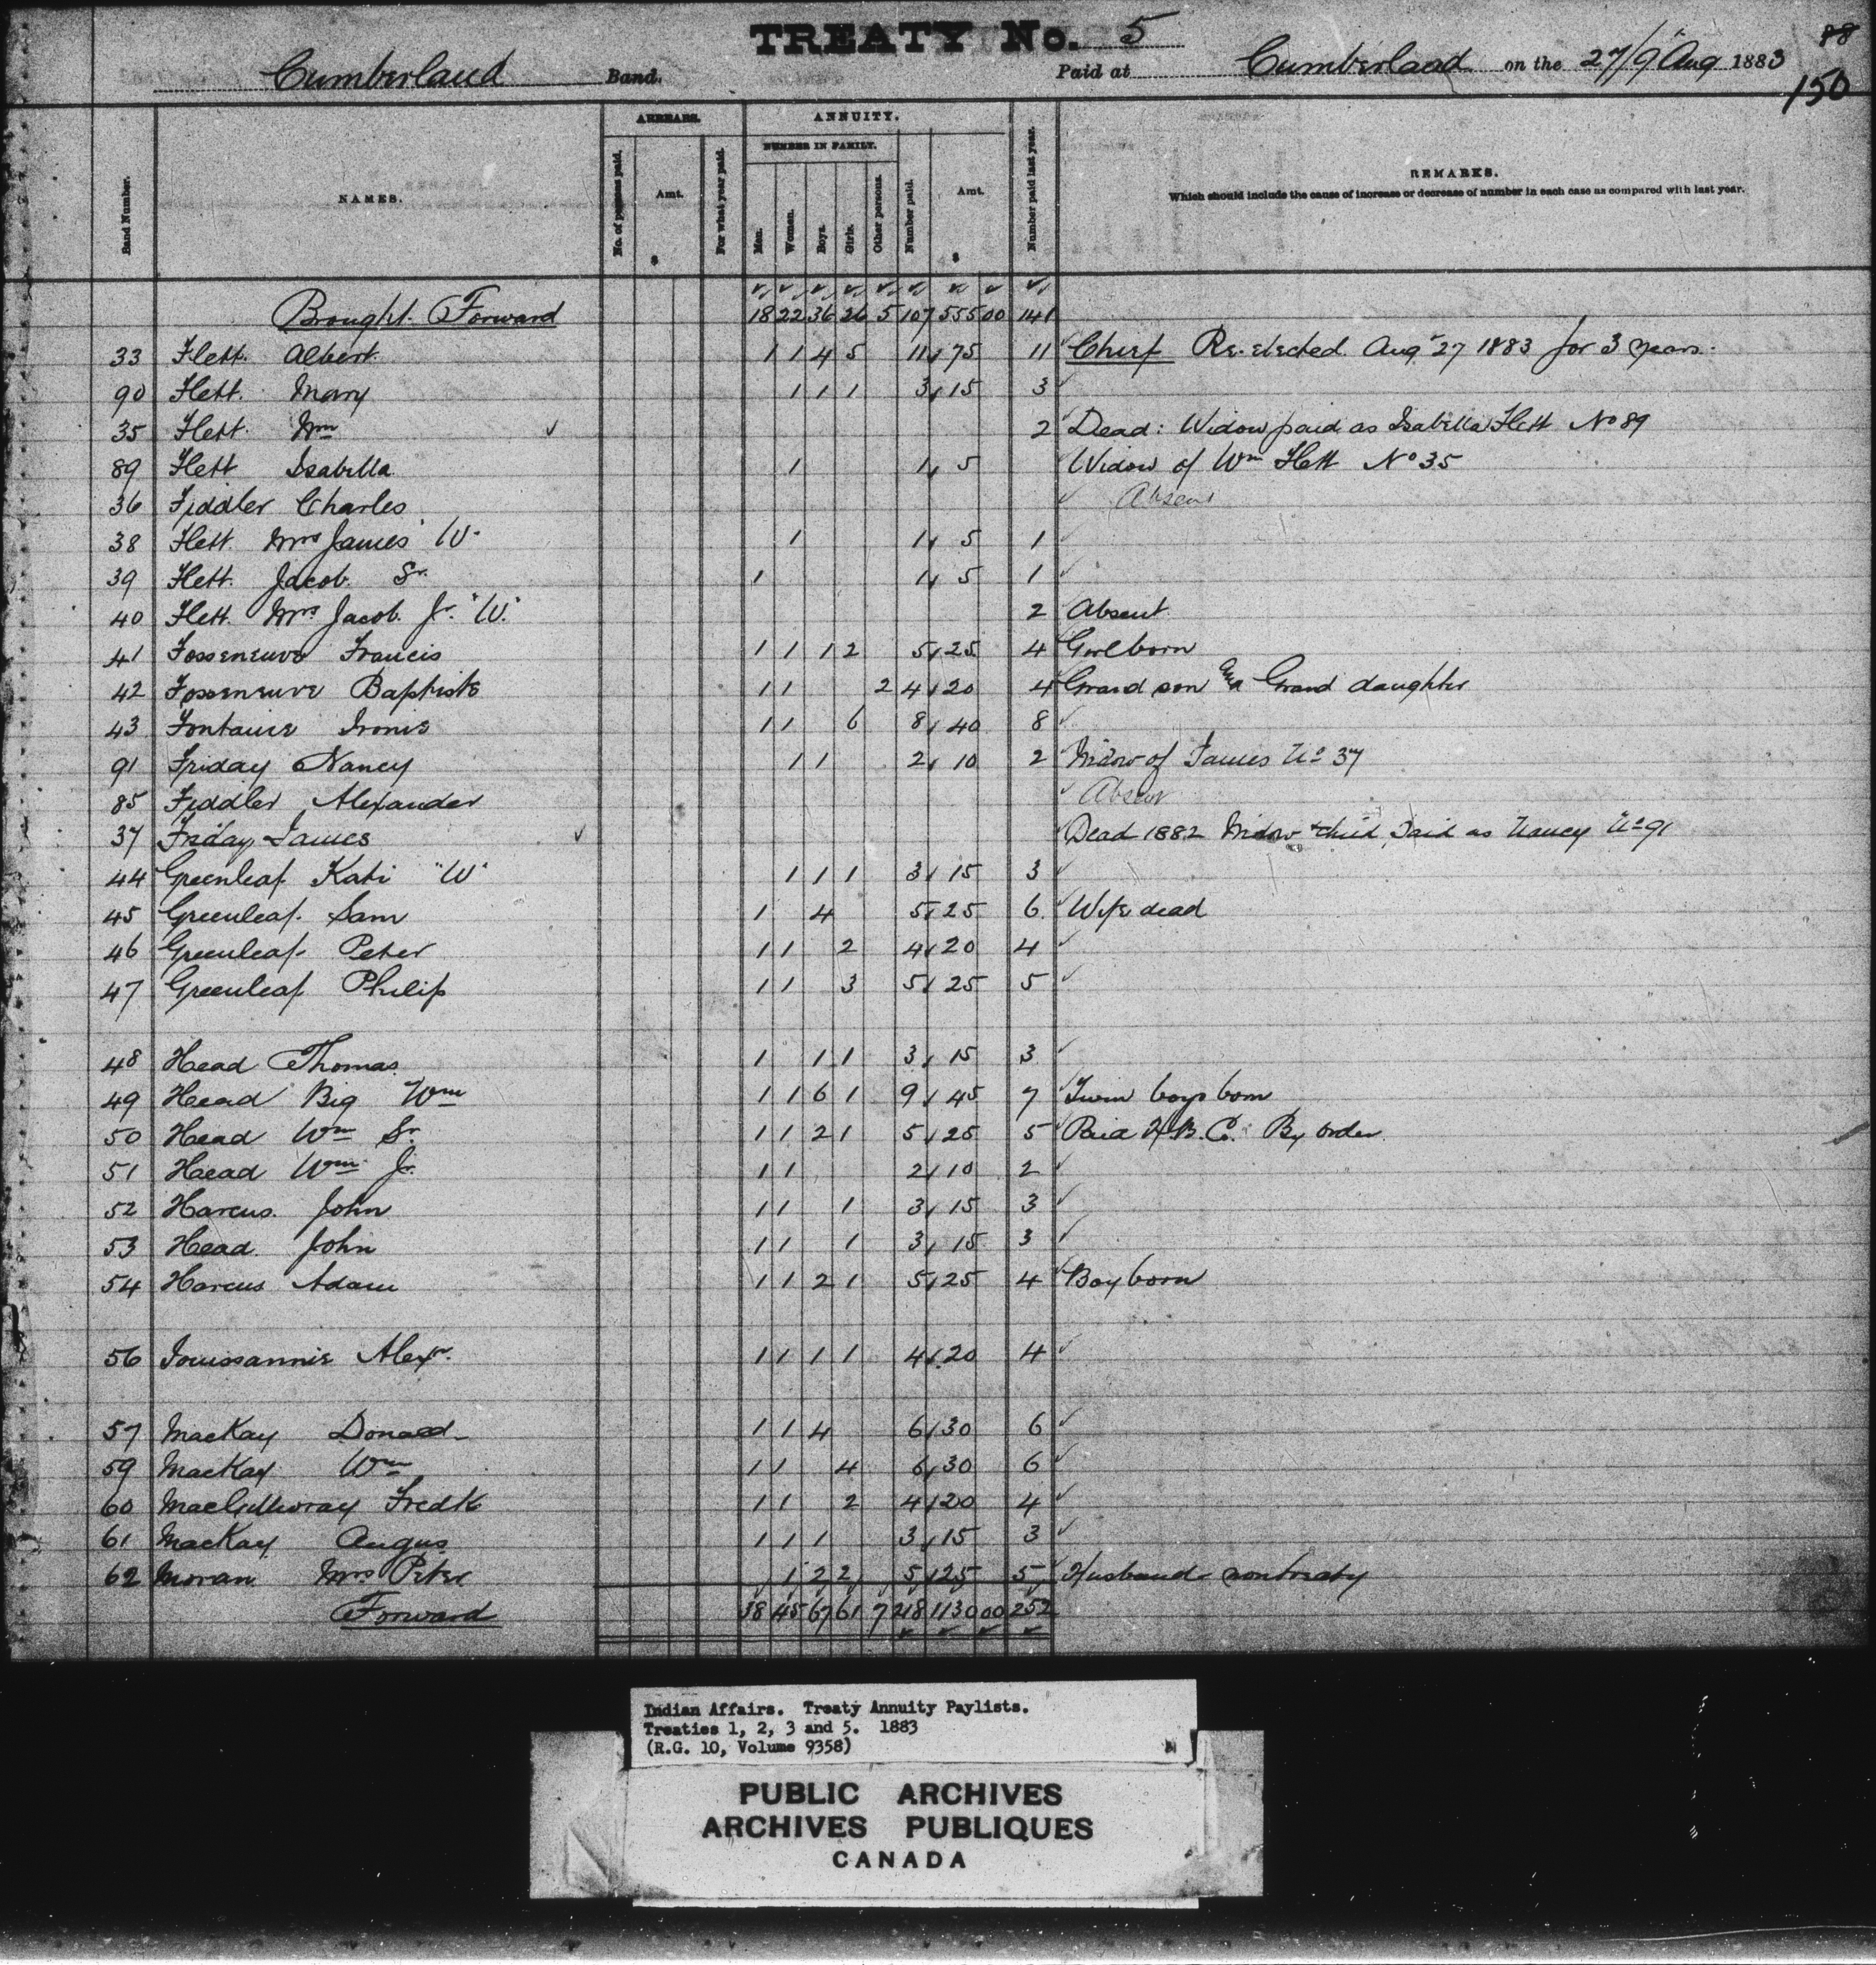 TREATY No. 5
88
150
Cumberland Band. Paid at Cumberland on the 27/9 Aug 1883
Band Number. NAMES. ARREARS. No. of persons paid. Amt. $ For what year paid. ANNUITY. NUMBER IN FAMILY. Men. Women. Boys. Girls. Other persons. Number paid. Amt. $ Number paid last year. REMARKS.
Which should include the cause of increase or decrease of number in each case as compared with last year.
Brought Forward 18 22 36 26 5 107 555 00 141
33 Flett Albert 1 1 4 5 11 75 11 Chief Re-elected Aug 27 1883 for 3 years
90 Flett Mary 1 1 1 3 15 3
35 Flett Wm 2 Dead: Widow paid as Isabella Flett No 89
89 Flett Isabella 1 1 5 Widow of Wm Flett No 35
36 Fiddler Charles Absent
38 Flett Mrs James "W" 1 1 5 1
39 Flett Jacob Sr. 1 1 5 1
40 Flett Mrs Jacob Jr. "W" 2 Absent
41 Fosseneuve Francis 1 1 1 2 5 25 4 Girl born
42 Fosseneuve Baptiste 1 1 2 4 20 4 Grand son & a Grand daughter
43 Fontaine 1 1 6 8 40 8
91 Friday Nancy 1 1 2 10 2 Widow of James No 37
85 Fiddler Alexander Absent
37 Friday James Dead 1882 Widow & child Paid as Nancy No 91
44 Greenleaf Kati "W" 1 1 1 3 15 3
45 Greenleaf Sam 1 4 5 25 6 Wife dead
46 Greenleaf Peter 1 1 2 4 20 4
47 Greenleaf Philip 1 1 3 5 25 5
48 Head Thomas 1 1 1 3 15 3
49 Head Big Wm 1 1 6 1 9 45 7 Twin boys born
50 Head Wm Sr. 1 1 2 1 5 25 5 Paid H.B. Co. By order
51 Head Wm Jr. 1 1 2 10 2
52 Harcus John 1 1 1 3 15 3
53 Head John 1 1 1 3 15 3
54 Harcus Adam 1 1 2 1 5 25 4 Boy born
56 Alexr. 1 1 1 1 4 20 4
57 MacKay Donald 1 1 4 6 30 6
59 MacKay Wm 1 1 4 6 30 6
60 MacGillivray Fredk 1 1 2 4 20 4
61 MacKay Angus 1 1 1 3 15 3
62 Moran Mrs Peter 1 2 2 5 25 5 Husband non treaty
Forward 38 45 67 61 7 218 1130 00 252
Indian Affairs. Treaty Annuity Paylists.
Treaties 1, 2, 3 and 5. 1883
(R.G. 10, Volume 9358)
PUBLIC ARCHIVES
ARCHIVES PUBLIQUES
CANADA